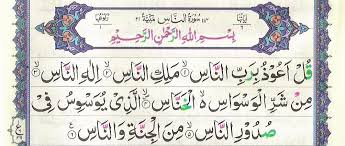 سُوْرَةُ النَّاسِ مَدَنِيَّةٌ
بِسْمِ اللهِ الرَّحْمٰنِ الرَّحِيْمِ
قُلْ اَعُوْذُ بِرَبِّ النَّاسِ ۙ۱ مَلِكِ النَّاسِ ۙ۲ اِلٰهِ النَّاسِ ۙ۳
مِنْ شَرِّ الْوَسْوَاسِ ۙ۬ الْخَنَّاسِ ۪ۙ۴ الَّذِيْ يُوَسْوِسُ فِيْ
صُدُوْرِ النَّاسِ ۙ۵ مِنَ الْجِنَّةِ وَالنَّاسِ ۶